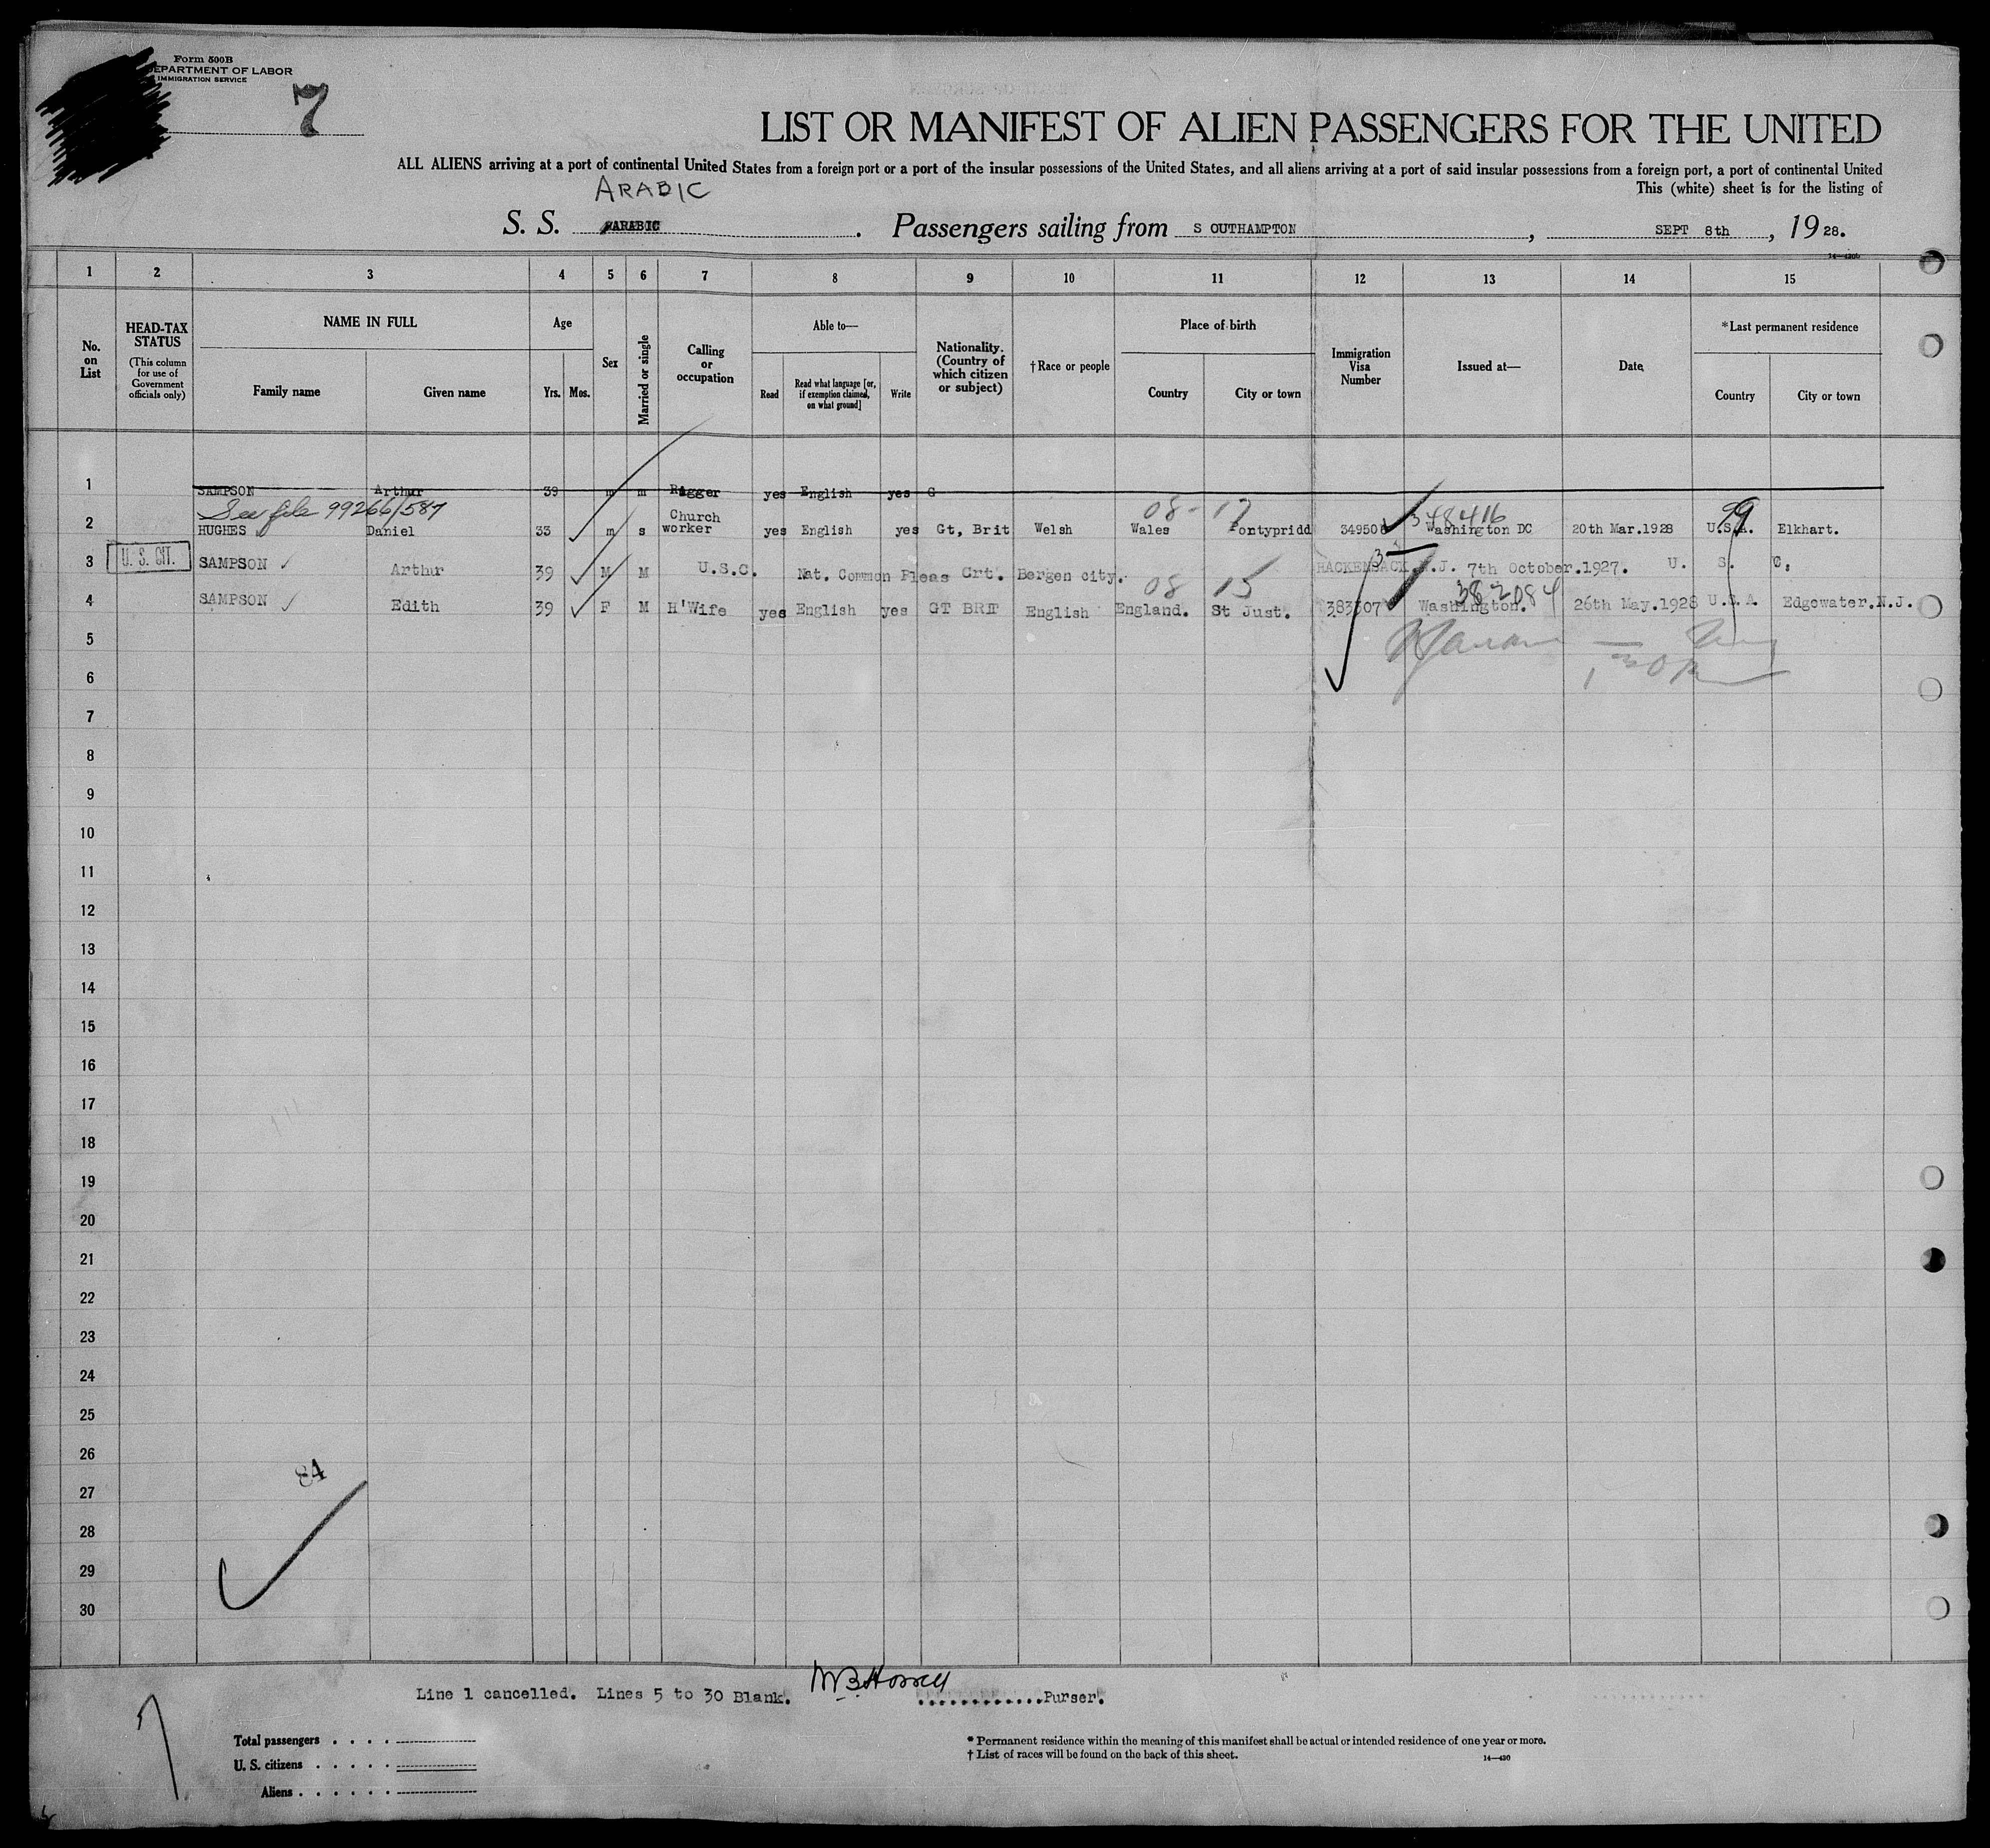 Form 500B
DEPARTMENT OF LABOR
IMMIGRATION SERVICE
7
LIST OR MANIFEST OF ALIEN PASSENGERS FOR THE UNITED
ALL ALIENS arriving at a port of continental United States from a foreign port or a port of the insular possessions of the United States, and all aliens arriving at a port of said insular possessions from a foreign port, a port of continental United
This (white) sheet is for the listing of
ARABIC
S. S. ARABIC. Passengers sailing from S OUTHAMPTON, SEPT 8th, 19 28.
14—420b
1 2 3 4 5 6 7 8 9 10 11 12 13 14 15
No. on List
HEAD-TAX STATUS
(This column for use of Government officials only)
NAME IN FULL
Family name
Given name
Age
Yrs. Mos.
Sex
Married or single
Calling or occupation
Able to—
Read
Read what language [or, if exemption claimed, on what ground]
Write
Nationality. (Country of which citizen or subject)
†Race or people
Place of birth
Country
City or town
Immigration Visa Number
Issued at—
Date
*Last permanent residence
Country
City or town
1 SAMPSON Arthur 39 m m Rigger yes English yes G
See file 99266/587
08-17 348416 99
2 HUGHES Daniel 33 m s Church worker yes English yes Gt, Brit Welsh Wales Pontypridd 349508 Washington DC 20th Mar.1928 U.S.A. Elkhart.
3 U. S. CIT. SAMPSON Arthur 39 M M U.S.C. Nat. Common Pleas Crt. Bergen city. HACKENSACK.N.J. 7th October.1927. U. S. C,
08 15 382084
4 SAMPSON Edith 39 F M H'Wife yes English yes GT BRIT English England. St Just. 383307 Washington. 26th May.1928 U.S.A. Edgewater.N.J.
5
6
7
8
9
10
11
12
13
14
15
16
17
18
19
20
21
22
23
24
25
26
84
27
28
29
30
Line 1 cancelled. Lines 5 to 30 Blank. ............Purser.
Total passengers
U. S. citizens
Aliens
* Permanent residence within the meaning of this manifest shall be actual or intended residence of one year or more.
† List of races will be found on the back of this sheet.
14—420